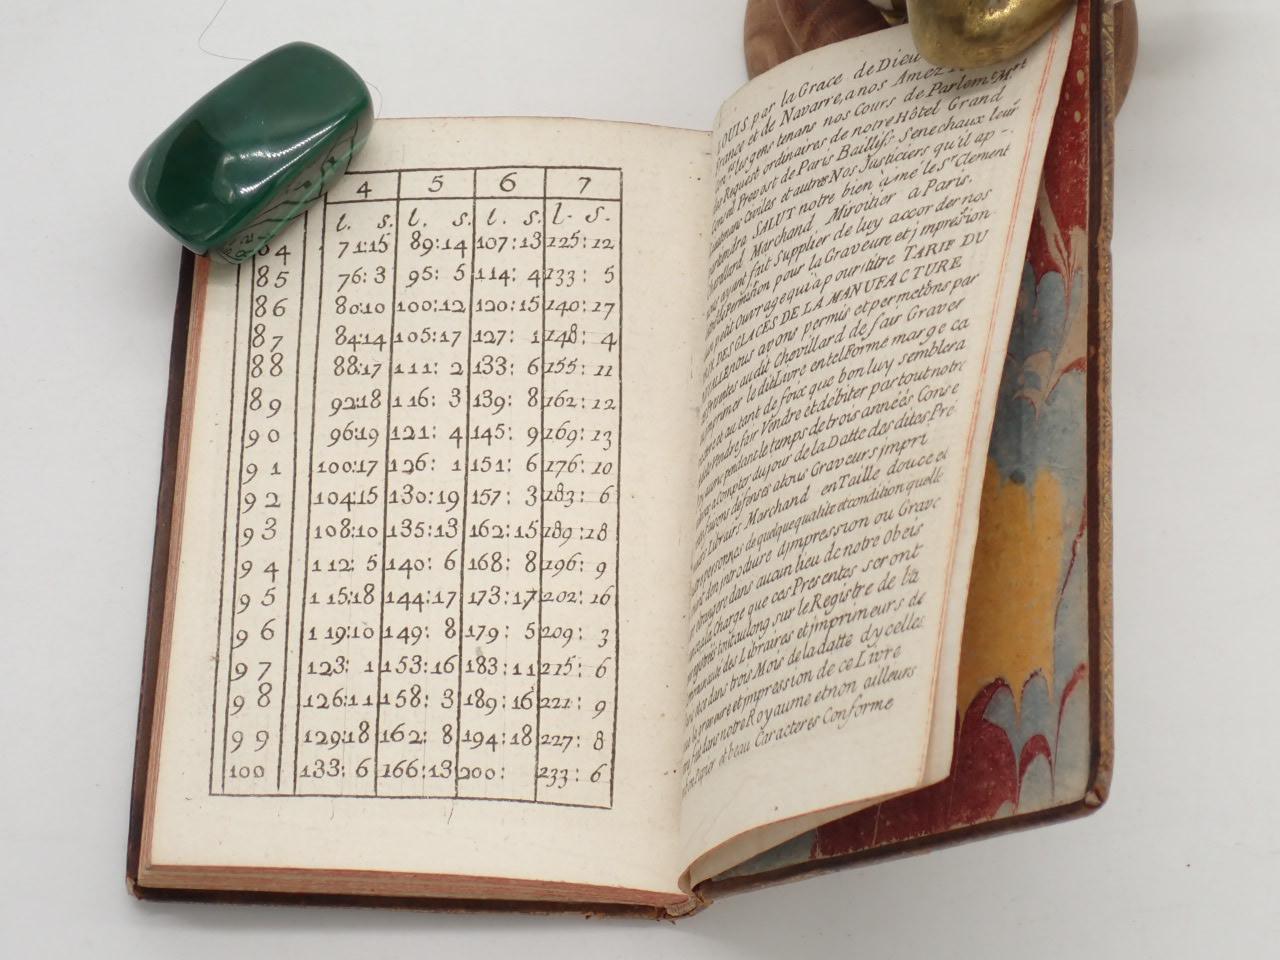 4 5 6 7
l. s. l. s. l. s. l. s.
84 71:15 89:14 107:13 125:12
85 76:3 95:5 114:4 133:5
86 80:10 100:12 120:15 140:17
87 84:14 105:17 127:1 148:4
88 88:17 111:2 133:6 155:11
89 92:18 116:3 139:8 162:12
90 96:19 121:4 145:9 169:13
91 100:17 126:1 151:6 176:10
92 104:15 130:19 157:3 183:6
93 108:10 135:13 162:15 189:18
94 112:5 140:6 168:8 196:9
95 115:18 144:17 173:17 202:16
96 119:10 149:8 179:5 209:3
97 123:1 153:16 183:11 215:6
98 126:11 158:3 189:16 221:9
99 129:18 162:8 194:18 227:8
100 133:6 166:13 200: 233:6
LOUIS par la Grace de Dieu
France et de Navarre, a nos Amez
les gens tenans nos Cours de Parlemt. Mrs
Request ordinaires de notre Hôtel Grand
Prevost de Paris Baillifs Senechaux leur
Civiles et autres Nos Justiciers qu'il ap-
SALUT notre bien ame le Sr. Clement
Chevillard Marchand Miroitier a Paris.
ayant fait Supplier de luy accorder nos
de Permission pour la Graveure et jmpresion
petit Ouvrage qui a pour titre TARIF DU
DES GLACES DE LA MANUFACTURE
nous avons permis et permetons par
audit Chevillard de fair Graver
jmprimer le dit Livre en tel Forme marge ca
et autant de foix que bon luy semblera
fair Vendre et debiter par tout notre
pendant le temps de trois années Conse
a Compter du jour de la Datte des dites Pre
Faisons defenses a tous Graveurs jmpri
Librairs Marchand en Taille douce et
personnes de quelque qualite et condition quelle
den jntroduire djmpression ou Grave
etrangere dans aucun lieu de notre Obeis
a la Charge que ces Presentes seront
tout au long sur le Registre de la
des Libraires et jmprimeurs de
dans trois Mois de la datte dycelles
graveure et jmpression de ce Livre
dans notre Royaume et non ailleurs
Papier et beau Caracteres Conforme